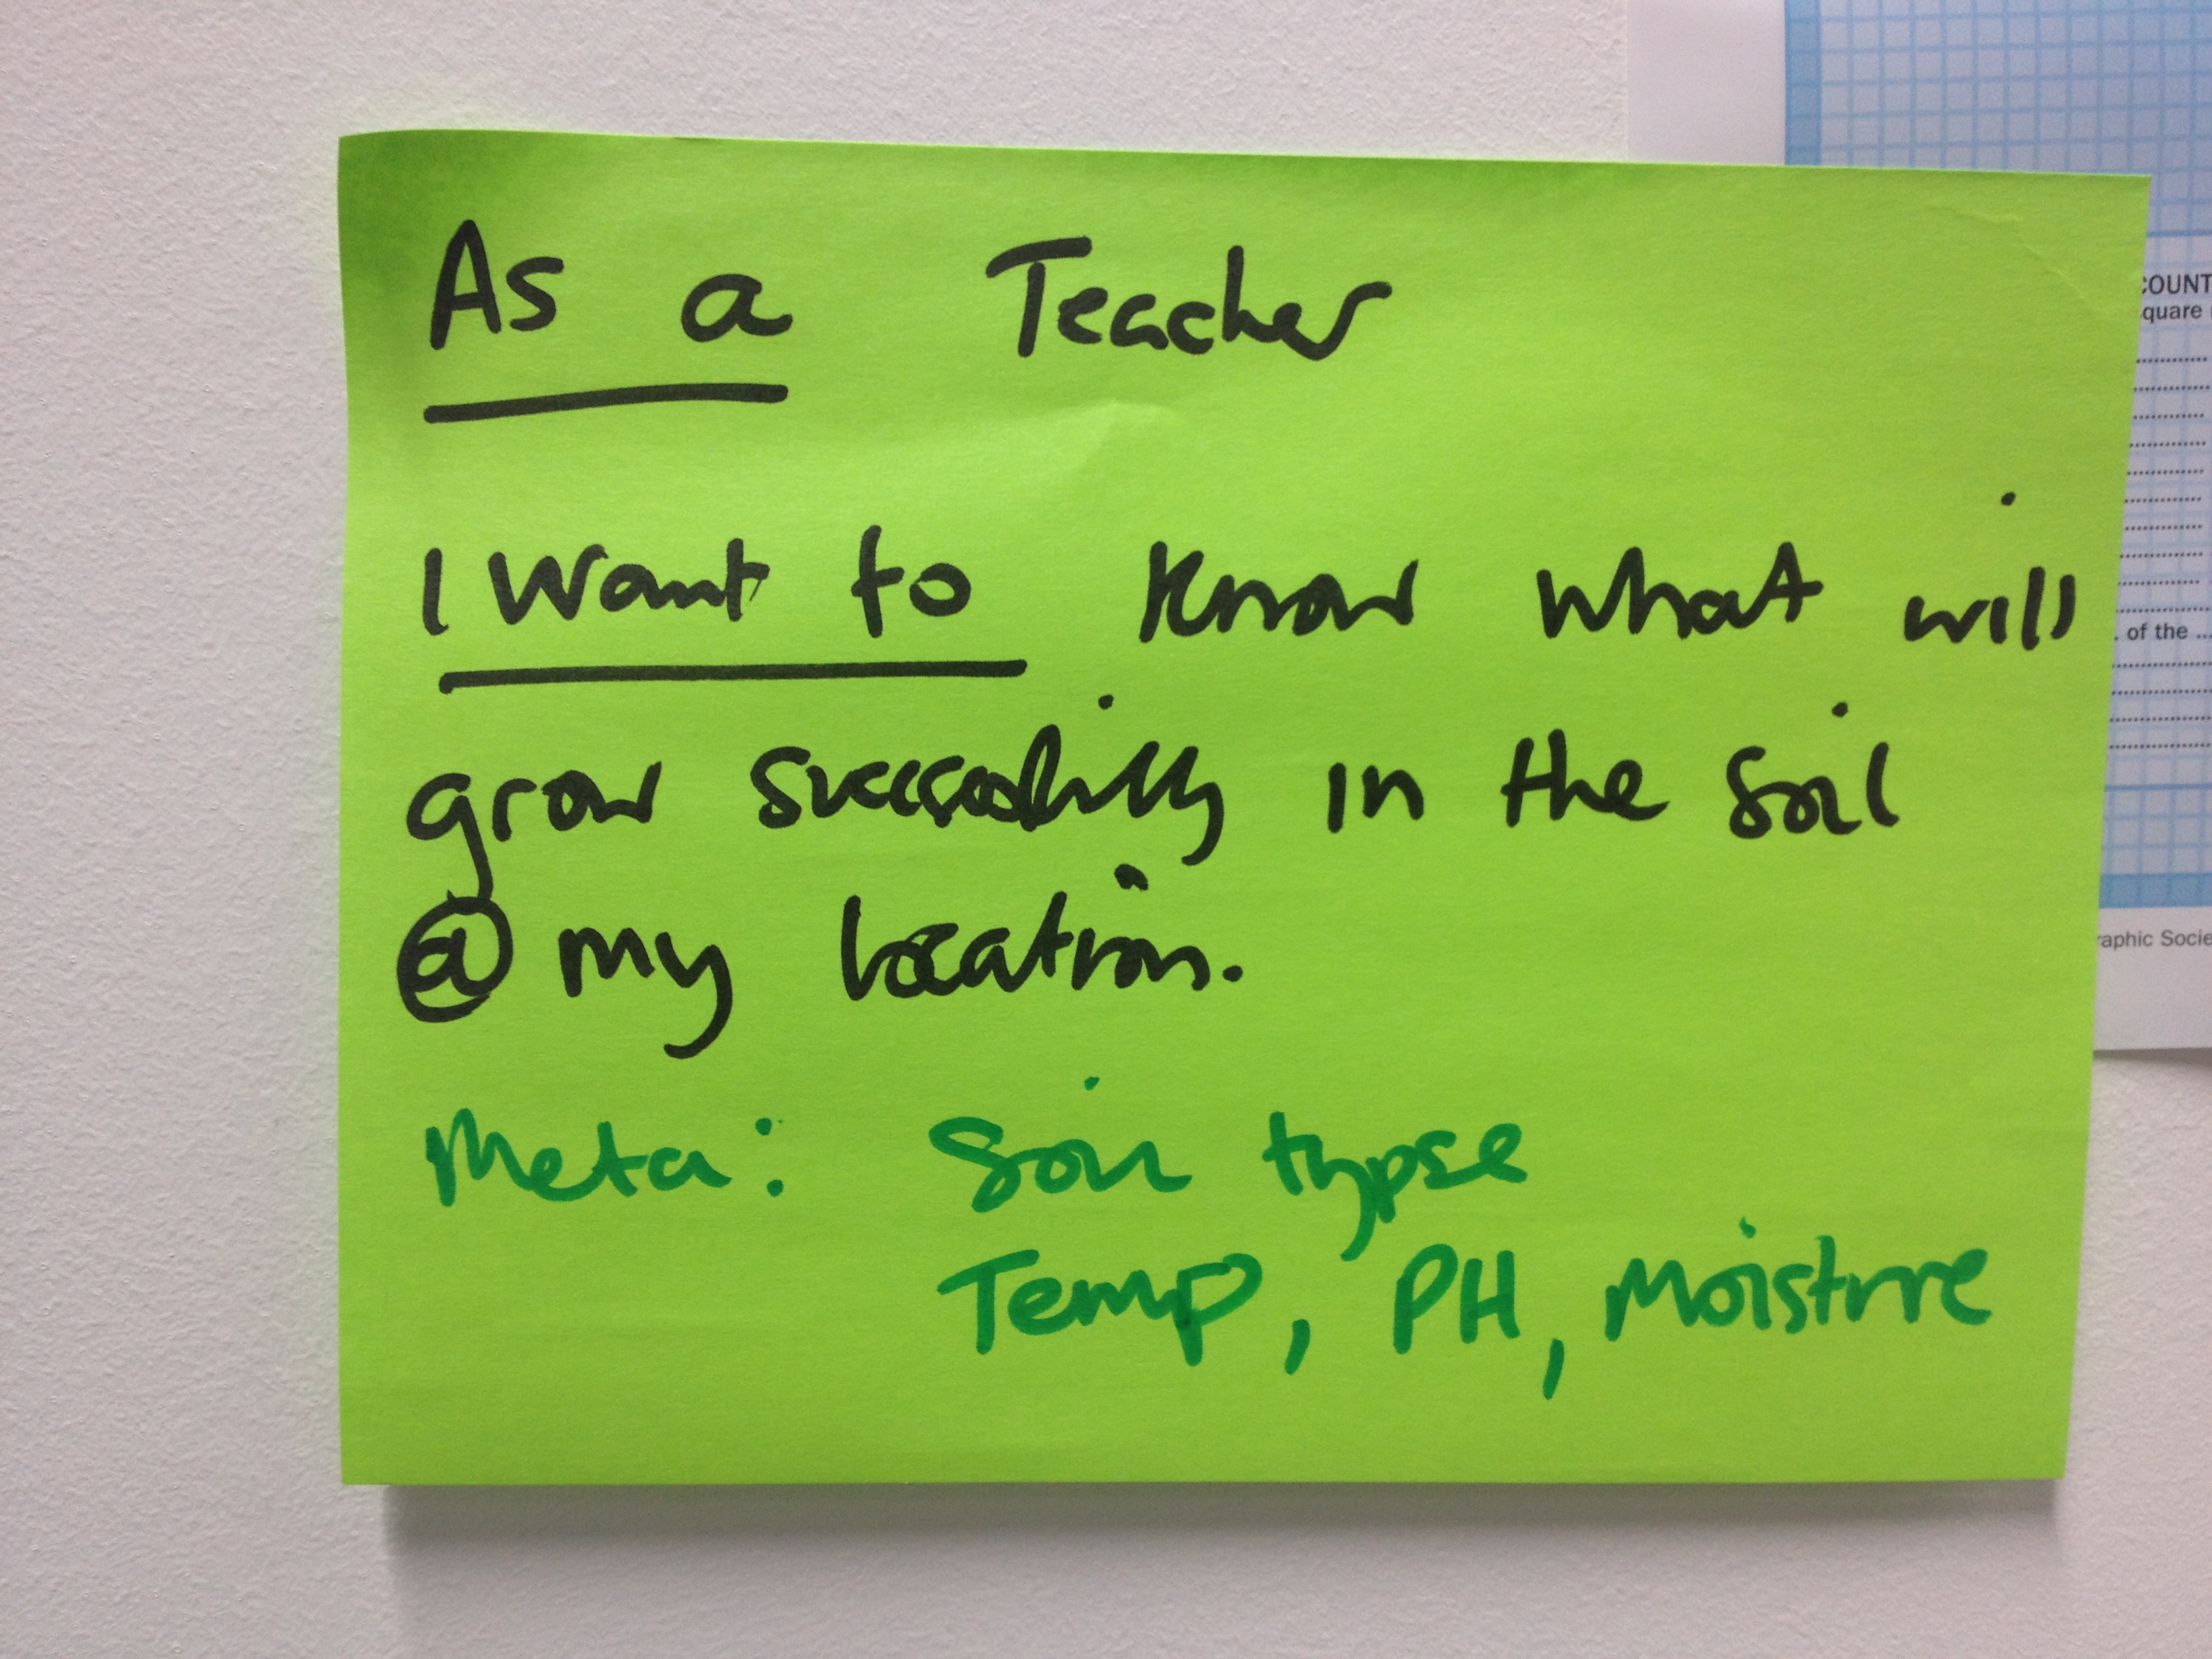 As a Teacher
I want to know what will
grow successfully in the soil
@ my location.
Meta: Soil typse
Temp, PH, Moisture
COUNT
quare
. of the ...
raphic Socie